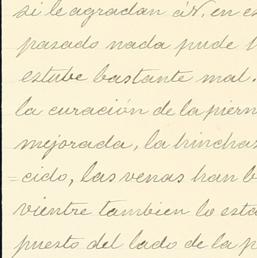 si le agradan á V. en es
pasado nada pude
estube bastante mal.
la curación de la piern
mejorada, la hinchas
=cido, las venas han b
vientre tambien lo esta
puesto del lado de la p